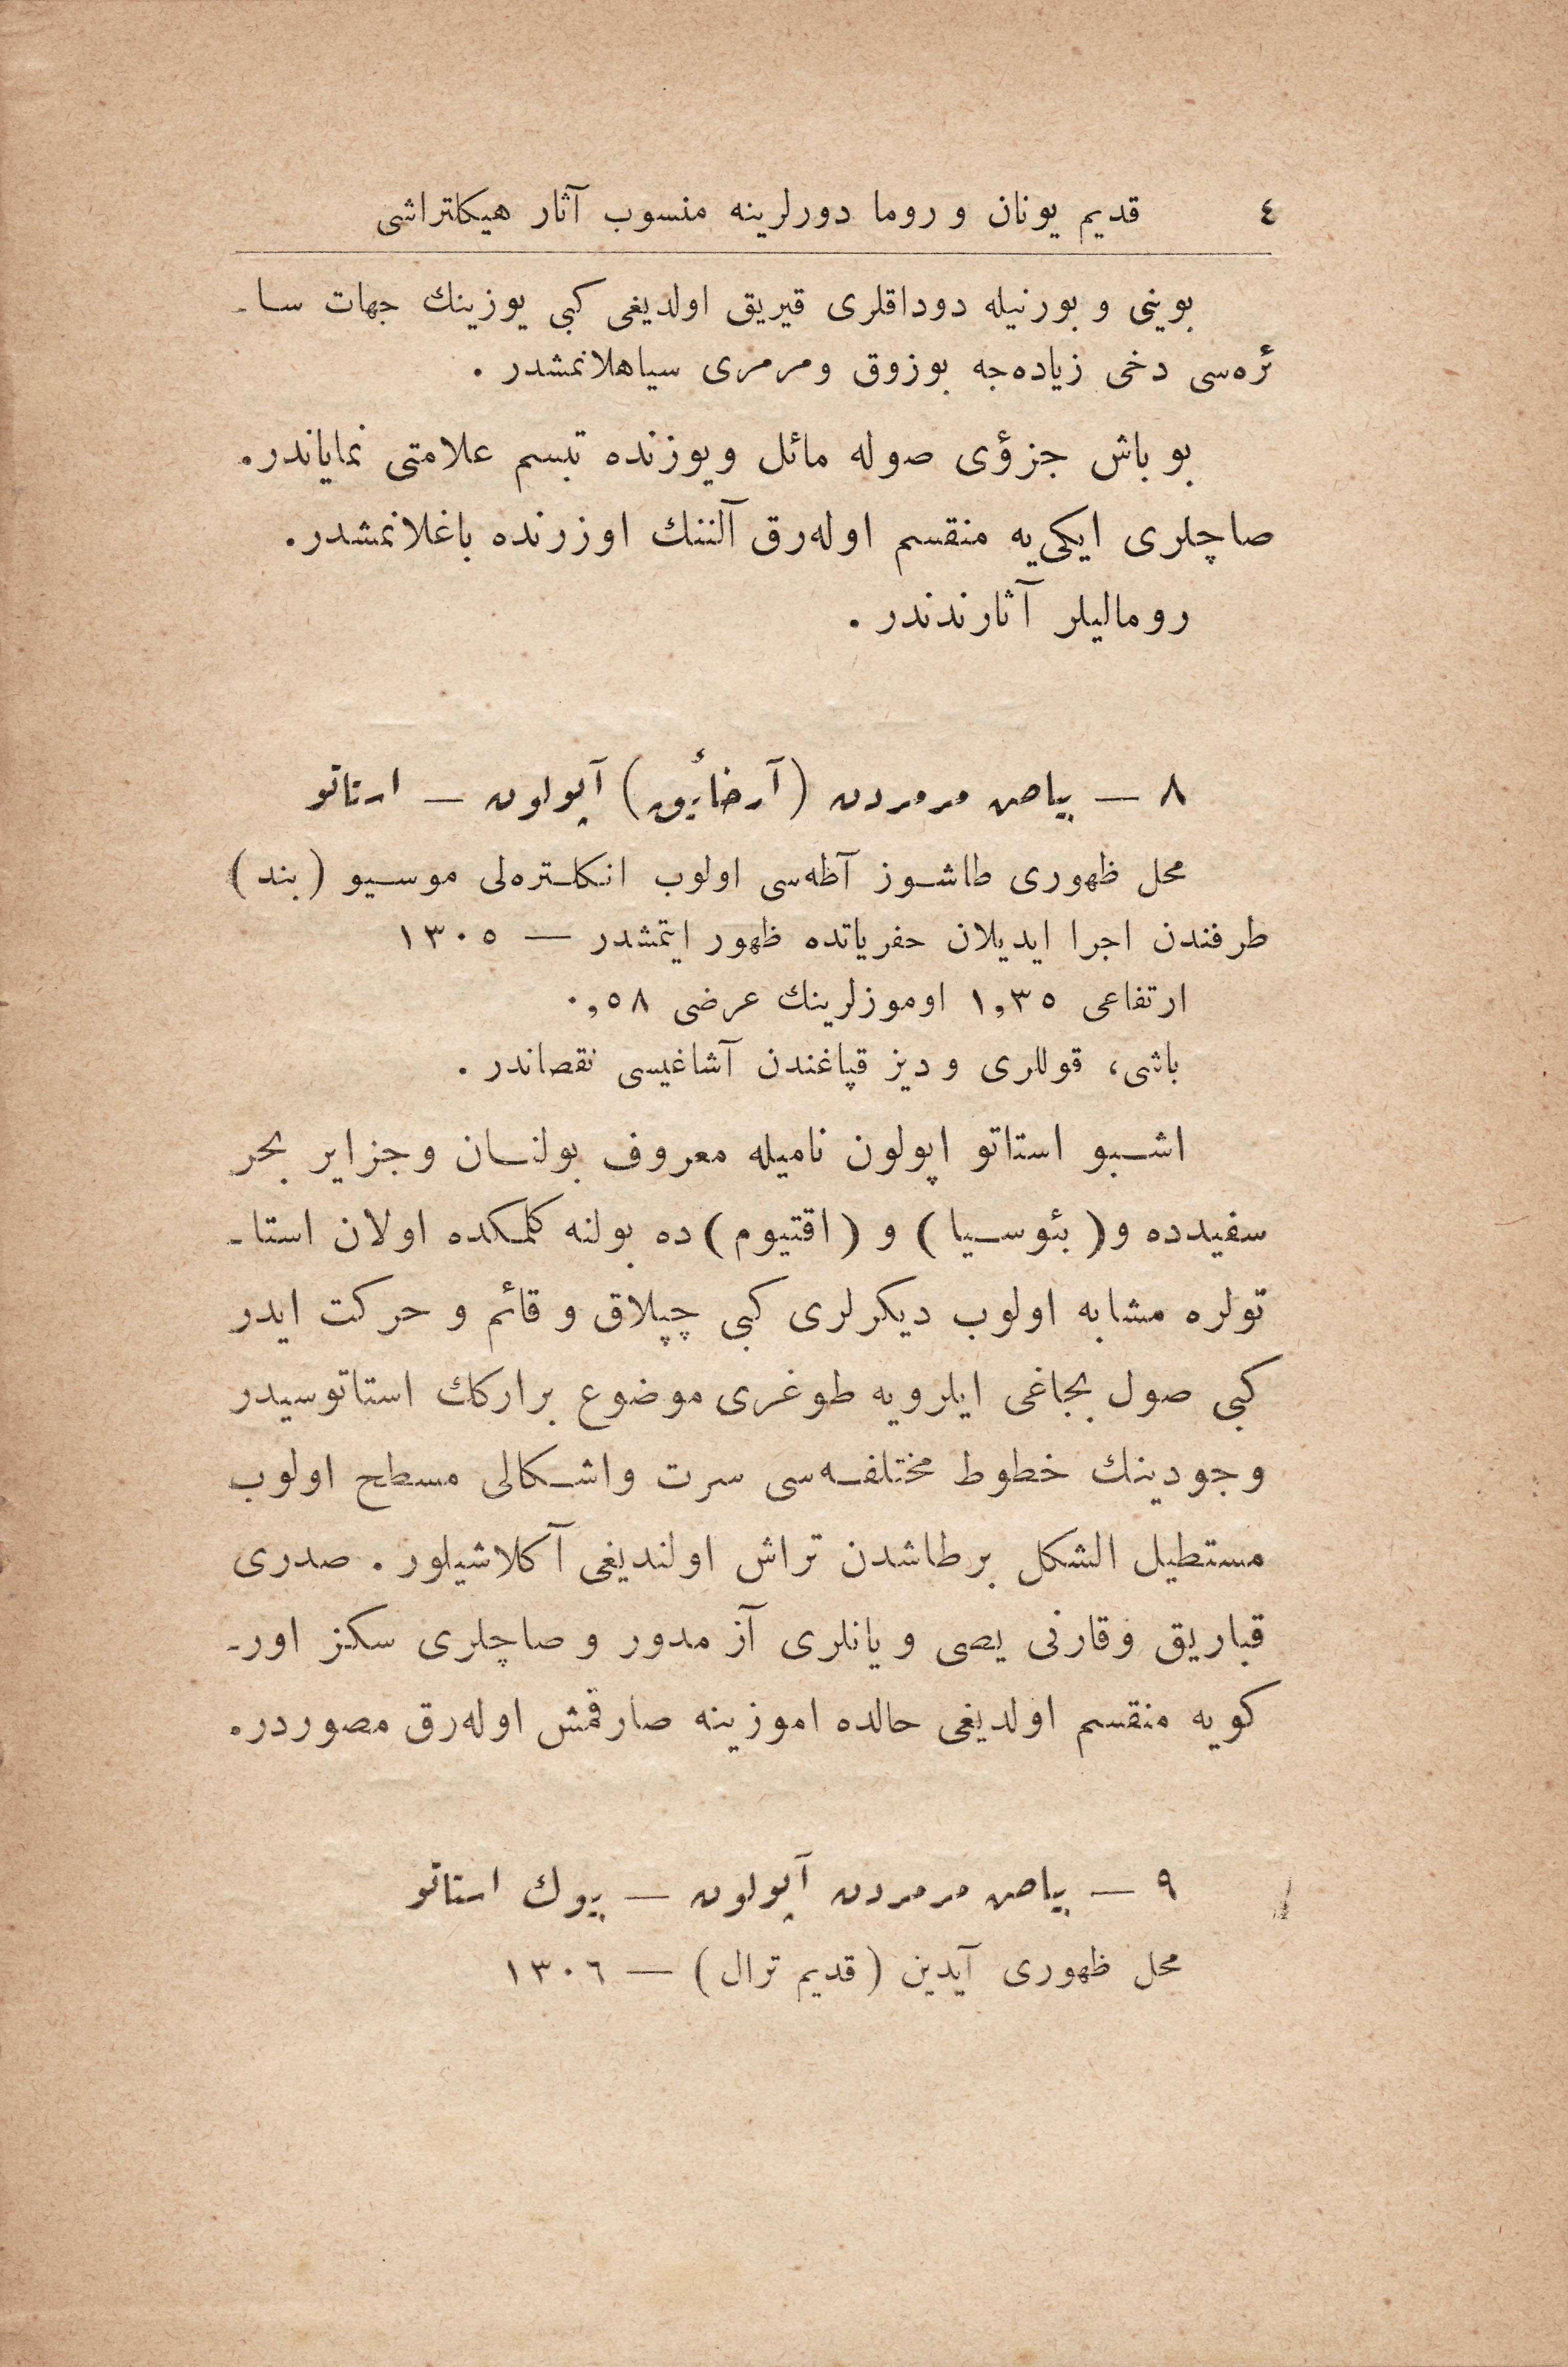 ٤ قديم يونان و روما دورلرينه منسوب آثار هيكلتراشى
بوينى و بورنيله دوداقلرى قيريق اولديغى كبى يوزينك جهات سا-
ئره‌سى دخى زياده‌جه بوزوق ومرمرى سياهلانمشدر .
بو باش جزؤى صوله مائل ويوزنده تبسم علامتى نماياندر.
صاچلرى ايكى‌يه منقسم اوله‌رق آلننك اوزرنده باغلانمشدر.
روماليلر آثارندندر .
٨ — بياض مرمردن (آرخائيق) آپولون — استاتو
محل ظهورى طاشوز آطه‌سى اولوب انكلتره‌لى موسيو (بند)
طرفندن اجرا ايديلان حفرياتده ظهور ايتمشدر — ١٣٠٥
ارتفاعى ١,٣٥ اوموزلرينك عرضى ٠,٥٨
باشى، قوللرى و ديز قپاغندن آشاغيسى نقصاندر .
اشبو استاتو اپولون ناميله معروف بولنان وجزاير بحر
سفيدده و(بئوسيا) و (اقتيوم)ده بولنه كلمكده اولان استا-
تولره مشابه اولوب ديكرلرى كبى چپلاق و قائم و حركت ايدر
كبى صول بجاغى ايلرويه طوغرى موضوع براركك استاتوسيدر
وجودينك خطوط مختلفه‌سى سرت واشكالى مسطح اولوب
مستطيل الشكل برطاشدن تراش اولنديغى آكلاشيلور . صدرى
قباريق وقارنى يصى و يانلرى آز مدور و صاچلرى سكز اور-
كويه منقسم اولديغى حالده اموزينه صارقمش اوله‌رق مصوردر.
٩ — بياض مرمردن آپولون — بيوك استاتو
محل ظهورى آيدين (قديم ترال) — ١٣٠٦